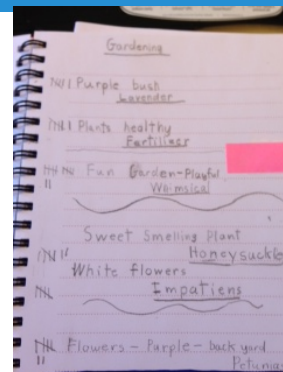 Gardening
Purple bush
Lavender
Plants healthy
Fertilizer
Fun Garden-Playful
Whimsical
Sweet Smelling Plant
Honeysuckle
White flowers
Impatiens
Flowers - Purple - back yard
Petunias